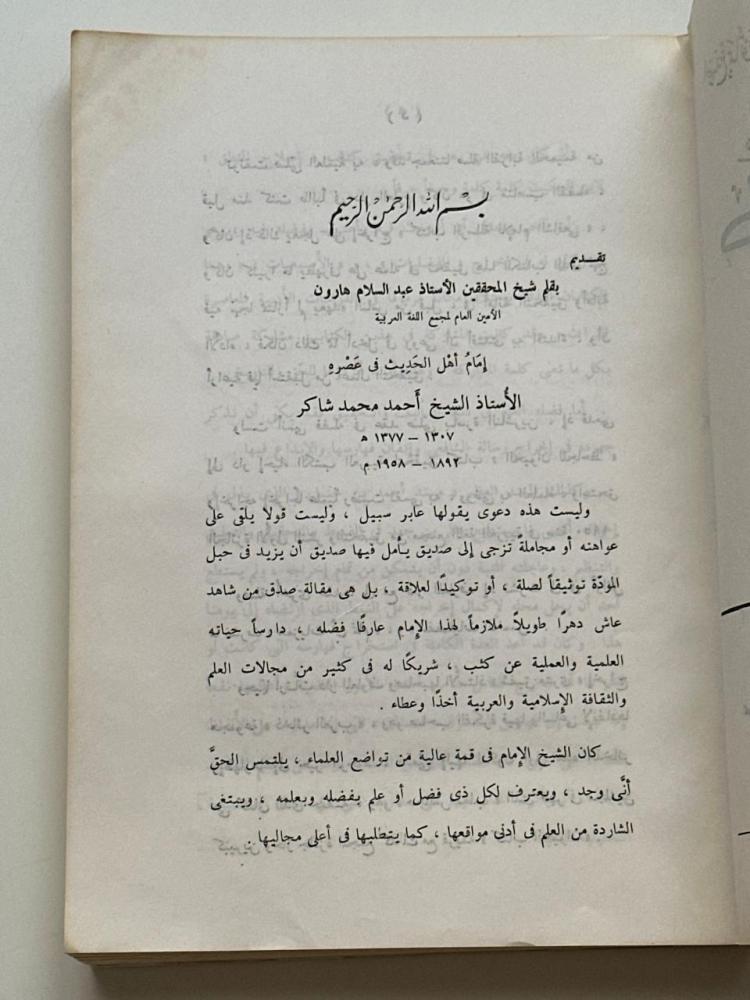 بسم الله الرحمن الرحيم
تقــديم
بقلم شيخ المحققين الأستاذ عبد السلام هارون
الأمين العام لمجمع اللغة العربية
إمَامُ أهْل الحَدِيث فى عَصْرِهِ
الأستاذ الشيخ أحمد محمد شاكر
١٣٠٧ – ١٣٧٧ ه
١٨٩٢ – ١٩٥٨ م
وليست هذه دعوى يقولها عابر سبيل ، وليست قولا يلقى على
عواهنه أو مجاملةً تزجى إلى صديق يأمل فيها صديق أن يزيد فى حبل
المودّة توثيقاً لصلة ، أو توكيدًا لعلاقة ، بل هى مقالة صدْق من شاهد
عاش دهرًا طويلاً ملازماً لهذا الإمام عارفًا فضله ، دارساً حياته
العلمية والعملية عن كثب ، شريكًا له فى كثير من مجالات العلم
والثقافة الإسلامية والعربية أخذًا وعطاء .
كان الشيخ الإمام فى قمة عالية من تواضع العلماء ، يلتمس الحقَّ
أنَّى وجد ، ويعترف لكل ذى فضل أو علم بفضله وبعلمه ، ويبتغى
الشاردة من العلم فى أدنى مواقعها ، كما يتطلبها فى أعلى مجاليها .